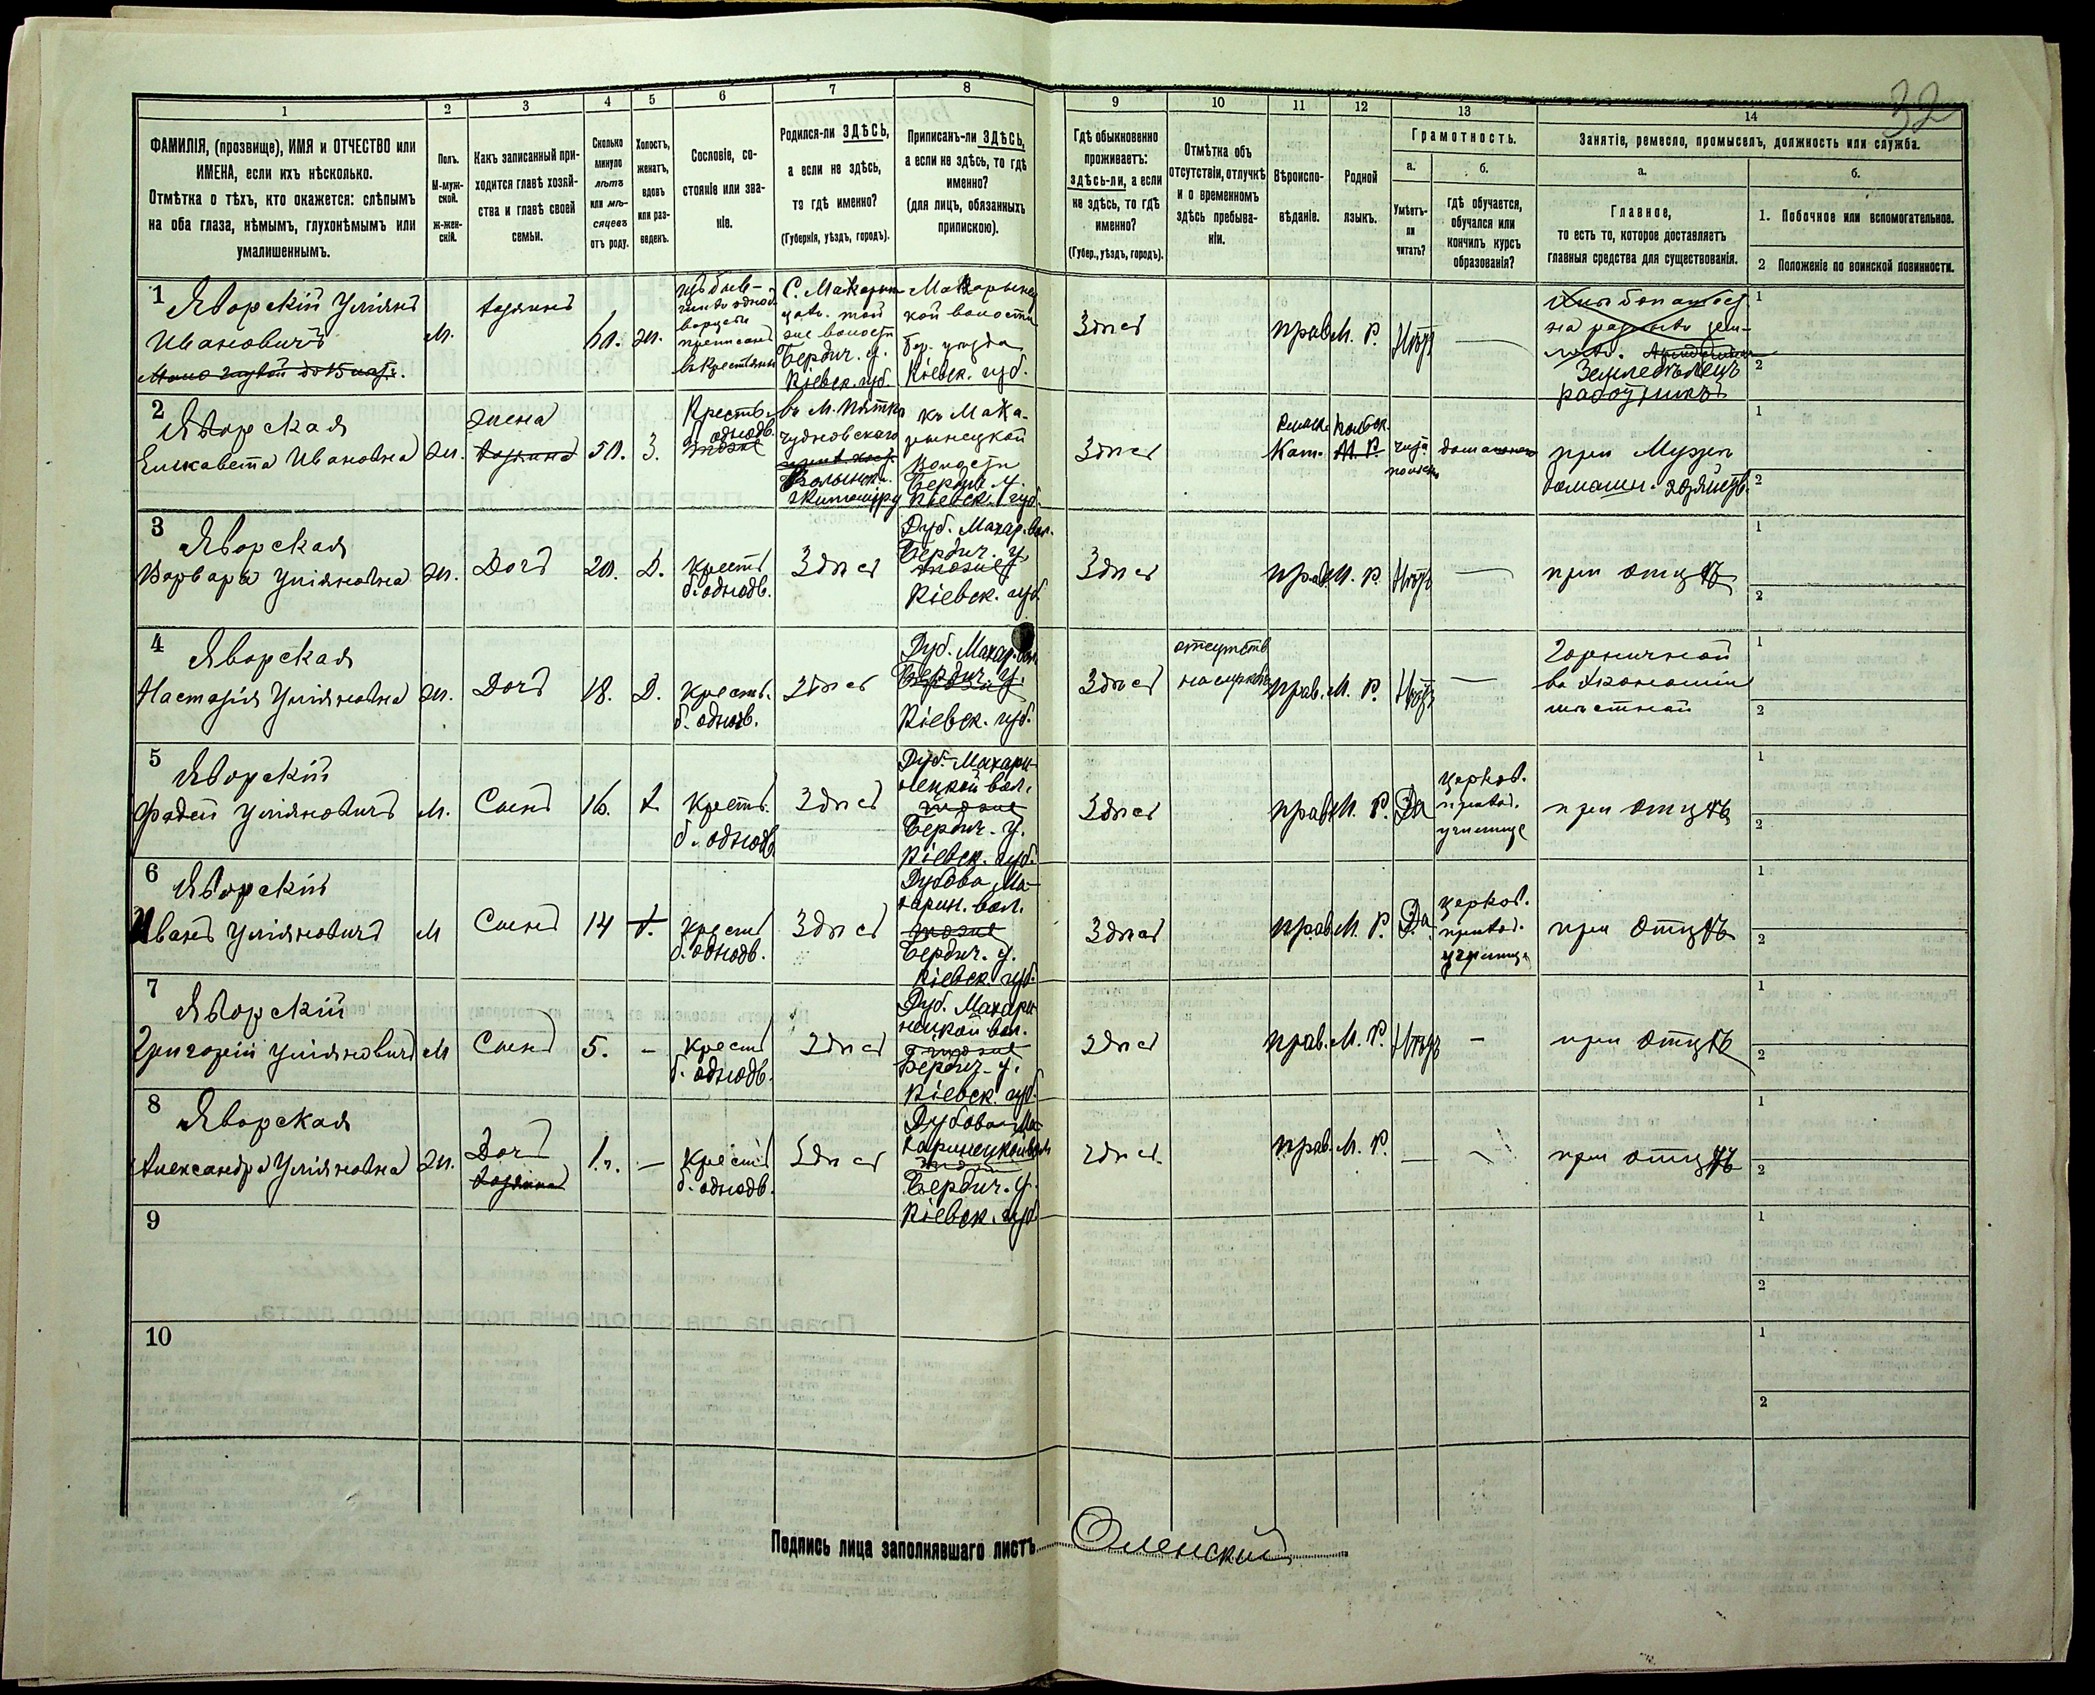 32
1
2
3
4
5
6
7
8
9
10
11
12
13
14
ФАМИЛІЯ, (прозвище), ИМЯ и ОТЧЕСТВО или
ИМЕНА, если ихъ нѣсколько.
Отмѣтка о тѣхъ, кто окажется: слѣпымъ
на оба глаза, нѣмымъ, глухонѣмымъ или
умалишеннымъ.
Полъ.
М-муж-
ской.
Ж-жен-
скій.
Какъ записанный при-
ходится главѣ хозяй-
ства и главѣ своей
семьи.
Сколько
минуло
лѣтъ
или мѣ-
сяцевъ
отъ роду.
Холостъ,
женатъ,
вдовъ
или раз-
веденъ.
Сословіе, со-
стояніе или зва-
ніе.
Родился-ли ЗДѢСЬ,
а если не здѣсь,
то гдѣ именно?
(Губернія, уѣздъ, городъ).
Приписанъ-ли ЗДѢСЬ,
а если не здѣсь, то гдѣ
именно?
(для лицъ, обязанныхъ
припискою).
Гдѣ обыкновенно
проживаетъ:
здѣсь-ли, а если
не здѣсь, то гдѣ
именно?
(Губер., уѣздъ, городъ).
Отмѣтка объ
отсутствіи, отлучкѣ
и о временномъ
здѣсь пребыва-
ніи.
Вѣроиспо-
вѣданіе.
Родной
языкъ.
Грамотность.
а.
б.
Умѣетъ-
ли
читать?
гдѣ обучается,
обучался или
кончилъ курсъ
образованія?
Занятіе, ремесло, промыселъ, должность или служба.
а.
б.
Главное,
то есть то, которое доставляетъ
главныя средства для существованія.
1. Побочное или вспомогательное.
2 Положеніе по воинской повинности.
1
Яворскій Уліянъ
Ивановичъ
м.
хозяинъ
60. ж.
приписанъ
въ крестьяне
С. Макарын-
той
же волости
Бердич. у.
Кіевск. губ.
Макарынец
кой волости
Бер. уѣзда
Кіевск. губ.
Здѣсь
прав. М. Р. Нѣтъ —
Земледѣлецъ
работникъ
1
2
2
Яворская
Елисавета Ивановна
ж.
жена
хозяина
50. З.
Крестья.
б. однодв.
въ М. Пятка
чудновскаго
Волынск.
Житомиру
къ Мака-
рынецкой
волости
Бердич. у.
Кіевск. губ.
Здѣсь
Римск.
Кат.
Польск.
М. Р.
при Мужѣ
домашн. хозяйств.
1
2
3
Яворская
Варвара Уліяновна ж. Дочь 20. Д. Крест.
б. однодв.
Здѣсь
Дуб. Макар. вол.
Бердич. у.
Кіевск. губ.
Здѣсь
прав. М. Р. Нѣтъ — при отцѣ
1
2
4
Яворская
Настазія Уліяновна ж. Дочь 18. Д. Крест.
б. однодв.
Здѣсь
Дуб. Макар. вол.
Бердич. у.
Кіевск. губ.
Здѣсь
отсутств
прав. М. Р. Нѣтъ —
Горничной
въ Экономіи
мѣстной
1
2
5
Яворскій
Фадей Уліяновичъ м. Сынъ 16. Х Крест.
б. однодв.
Здѣсь
Дуб. Макари-
нецкой вол.
тоже
Бердич. у.
Кіевск. губ.
Здѣсь
прав. М. Р. Да
церков.
приход.
училище
при отцѣ
1
2
6
Яворскій
Иванъ Уліяновичъ м Сынъ 14 Х. Крест
б. однодв.
Здѣсь
Дубова Ма-
карин. вол.
тоже
Бердич. у.
Кіевск. губ.
Здѣсь
прав. М. Р. Да
церков.
приход.
училище
при отцѣ
1
2
7
Яворскій
Григорій Уліяновичъ м Сынъ 5. — Крест
б. однодв.
Здѣсь
Дуб. Макари
нецкой вол.
тоже
Бердич. у.
Кіевск. губ.
Здѣсь
прав. М. Р. Нѣтъ — при отцѣ
1
2
8
Яворская
Александра Уліяновна ж. Дочь
хозяина
1 г. — Крест
б. однодв.
Здѣсь
Дубова Ма
каринецкой вол
Бердич. у.
Кіевск. губ.
Здѣсь
прав. М. Р. — — при отцѣ
1
2
9
1
2
10
1
2
Подпись лица заполнявшаго листъ Оленскій